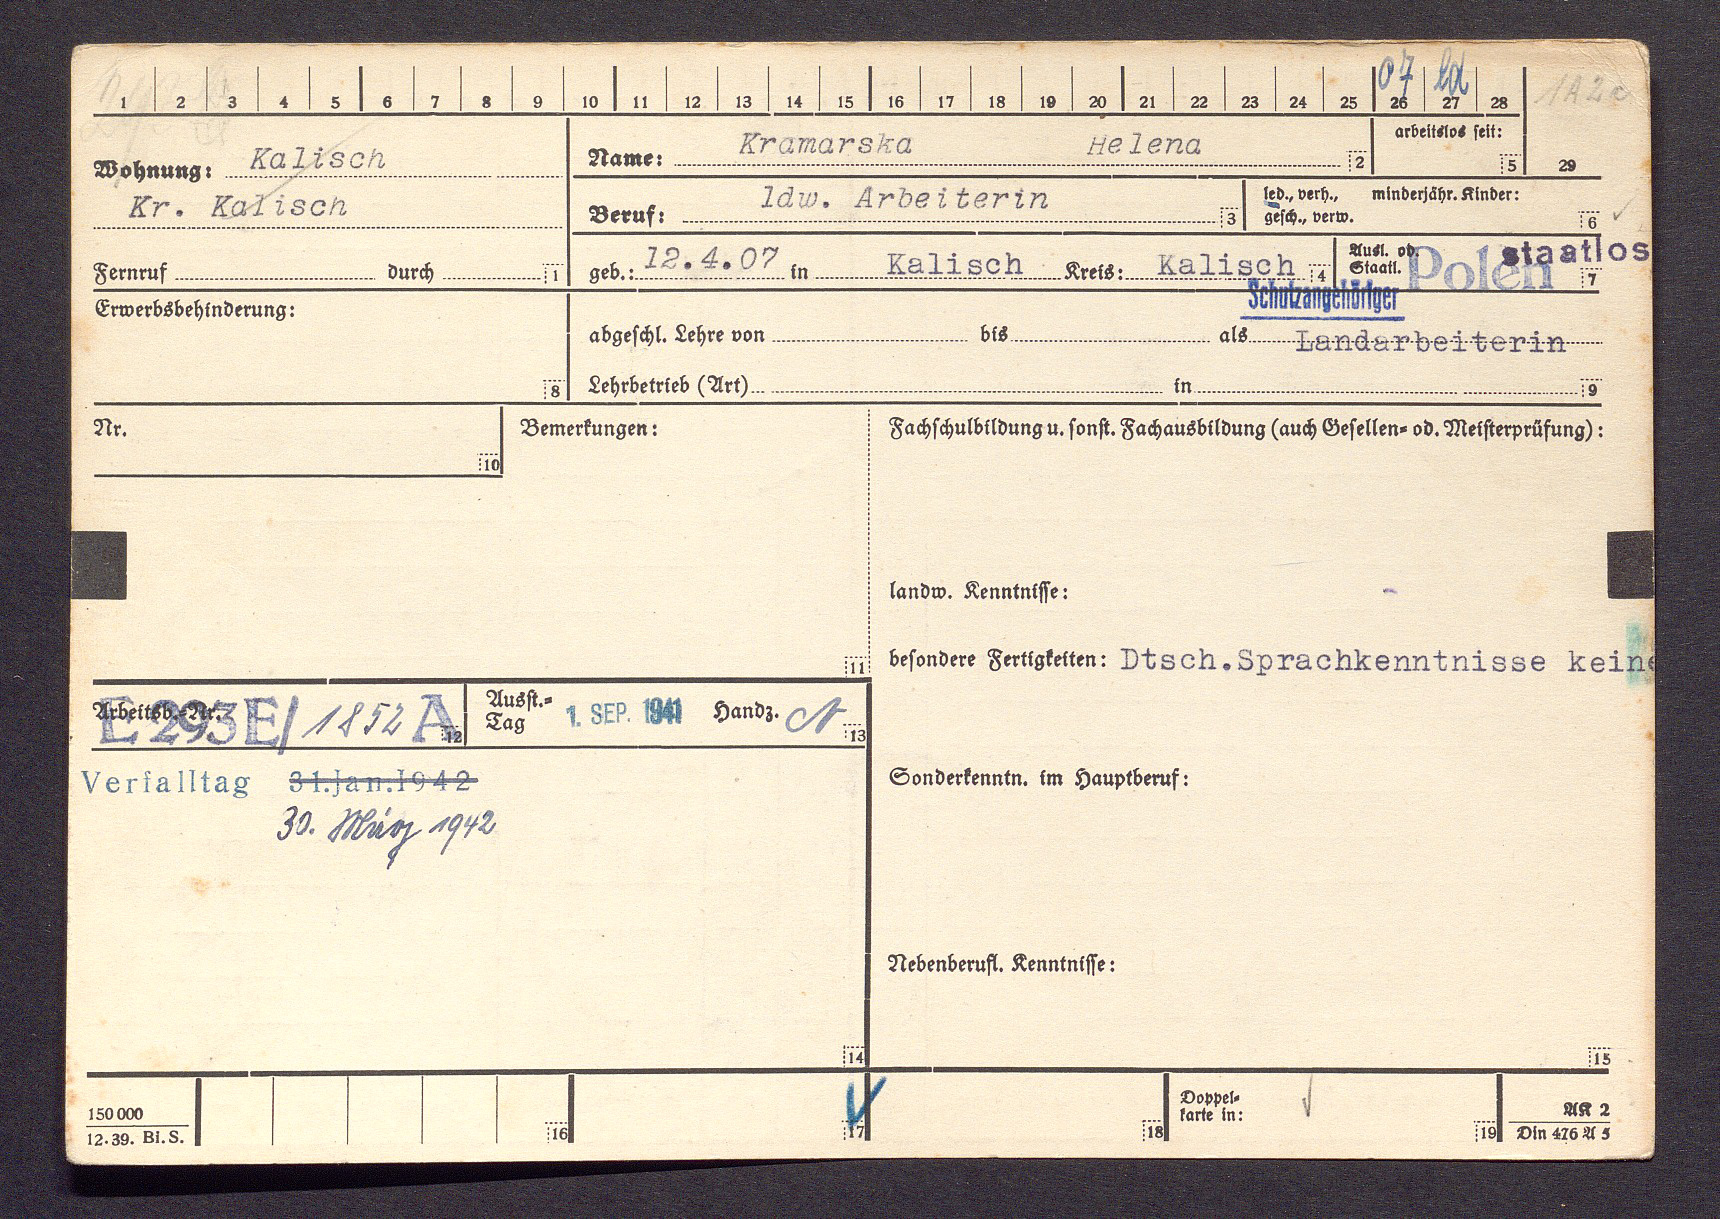 1 2 3 4 5 6 7 8 9 10 11 12 13 14 15 16 17 18 19 20 21 22 23 24 25 26 27 28
07 ld 1A2c
Wohnung: Kalisch
Kr. Kalisch
Fernruf durch 1
Name: Kramarska Helena 2
arbeitslos seit: 5
29
Beruf: ldw. Arbeiterin 3
led., verh., minderjähr. Kinder:
gesch., verw. 6
geb.: 12.4.07 in Kalisch Kreis: Kalisch 4
Ausl. od.
Staatl. Polen staatlos 7
Schutzangehöriger
Erwerbsbehinderung: 8
abgeschl. Lehre von bis als Landarbeiterin
Lehrbetrieb (Art) in 9
Nr. 10
Bemerkungen: 11
Fachschulbildung u. sonst. Fachausbildung (auch Gesellen- od. Meisterprüfung):
landw. Kenntnisse:
besondere Fertigkeiten: Dtsch.Sprachkenntnisse keine
Arbeitsb.-Nr. E 293E/1852 A 12
Ausst.-
Tag 1. SEP. 1941 Handz. 13
Verfalltag 31.Jan.1942
30. März 1942
14
Sonderkenntn. im Hauptberuf:
Nebenberufl. Kenntnisse:
15
150 000
12.39. Bi.S.
16
17
18
Doppel-
karte in:
19
AK 2
Din 476 A 5